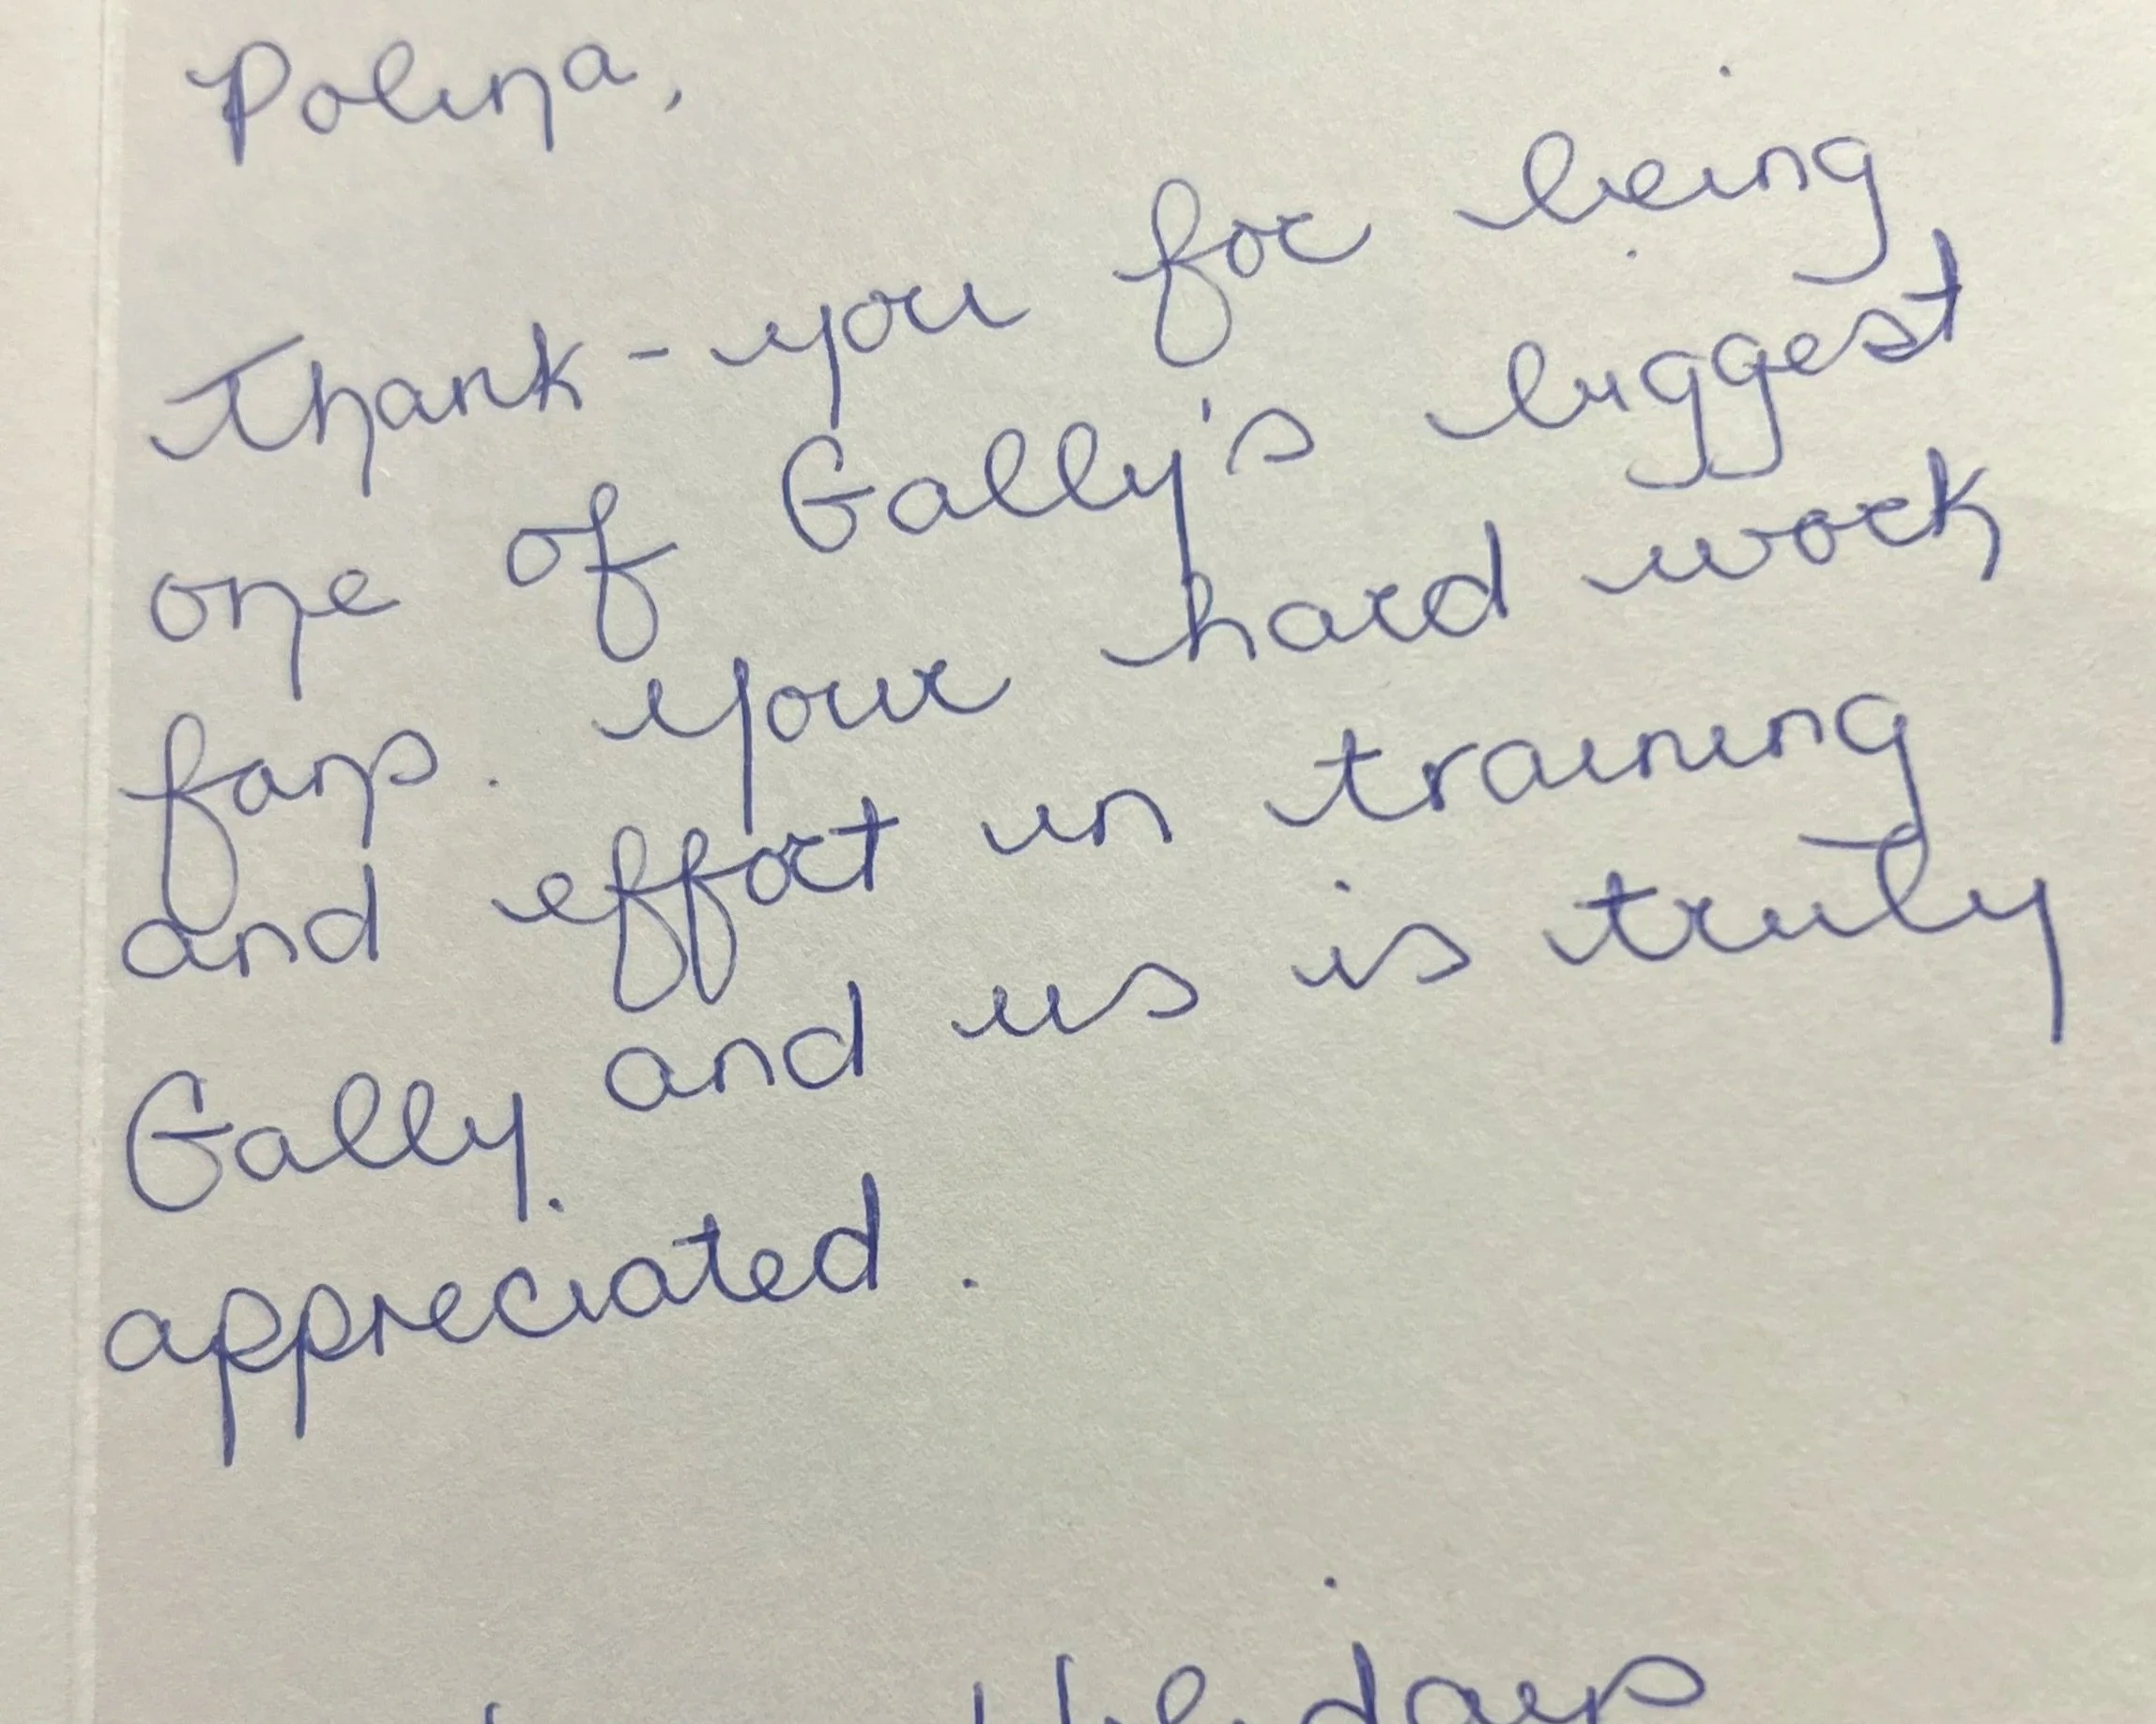 Polina,
Thank-you for being
one of Gally's biggest
fans. Your hard work
and effort in training
Gally and us is truly
appreciated.
Holidays